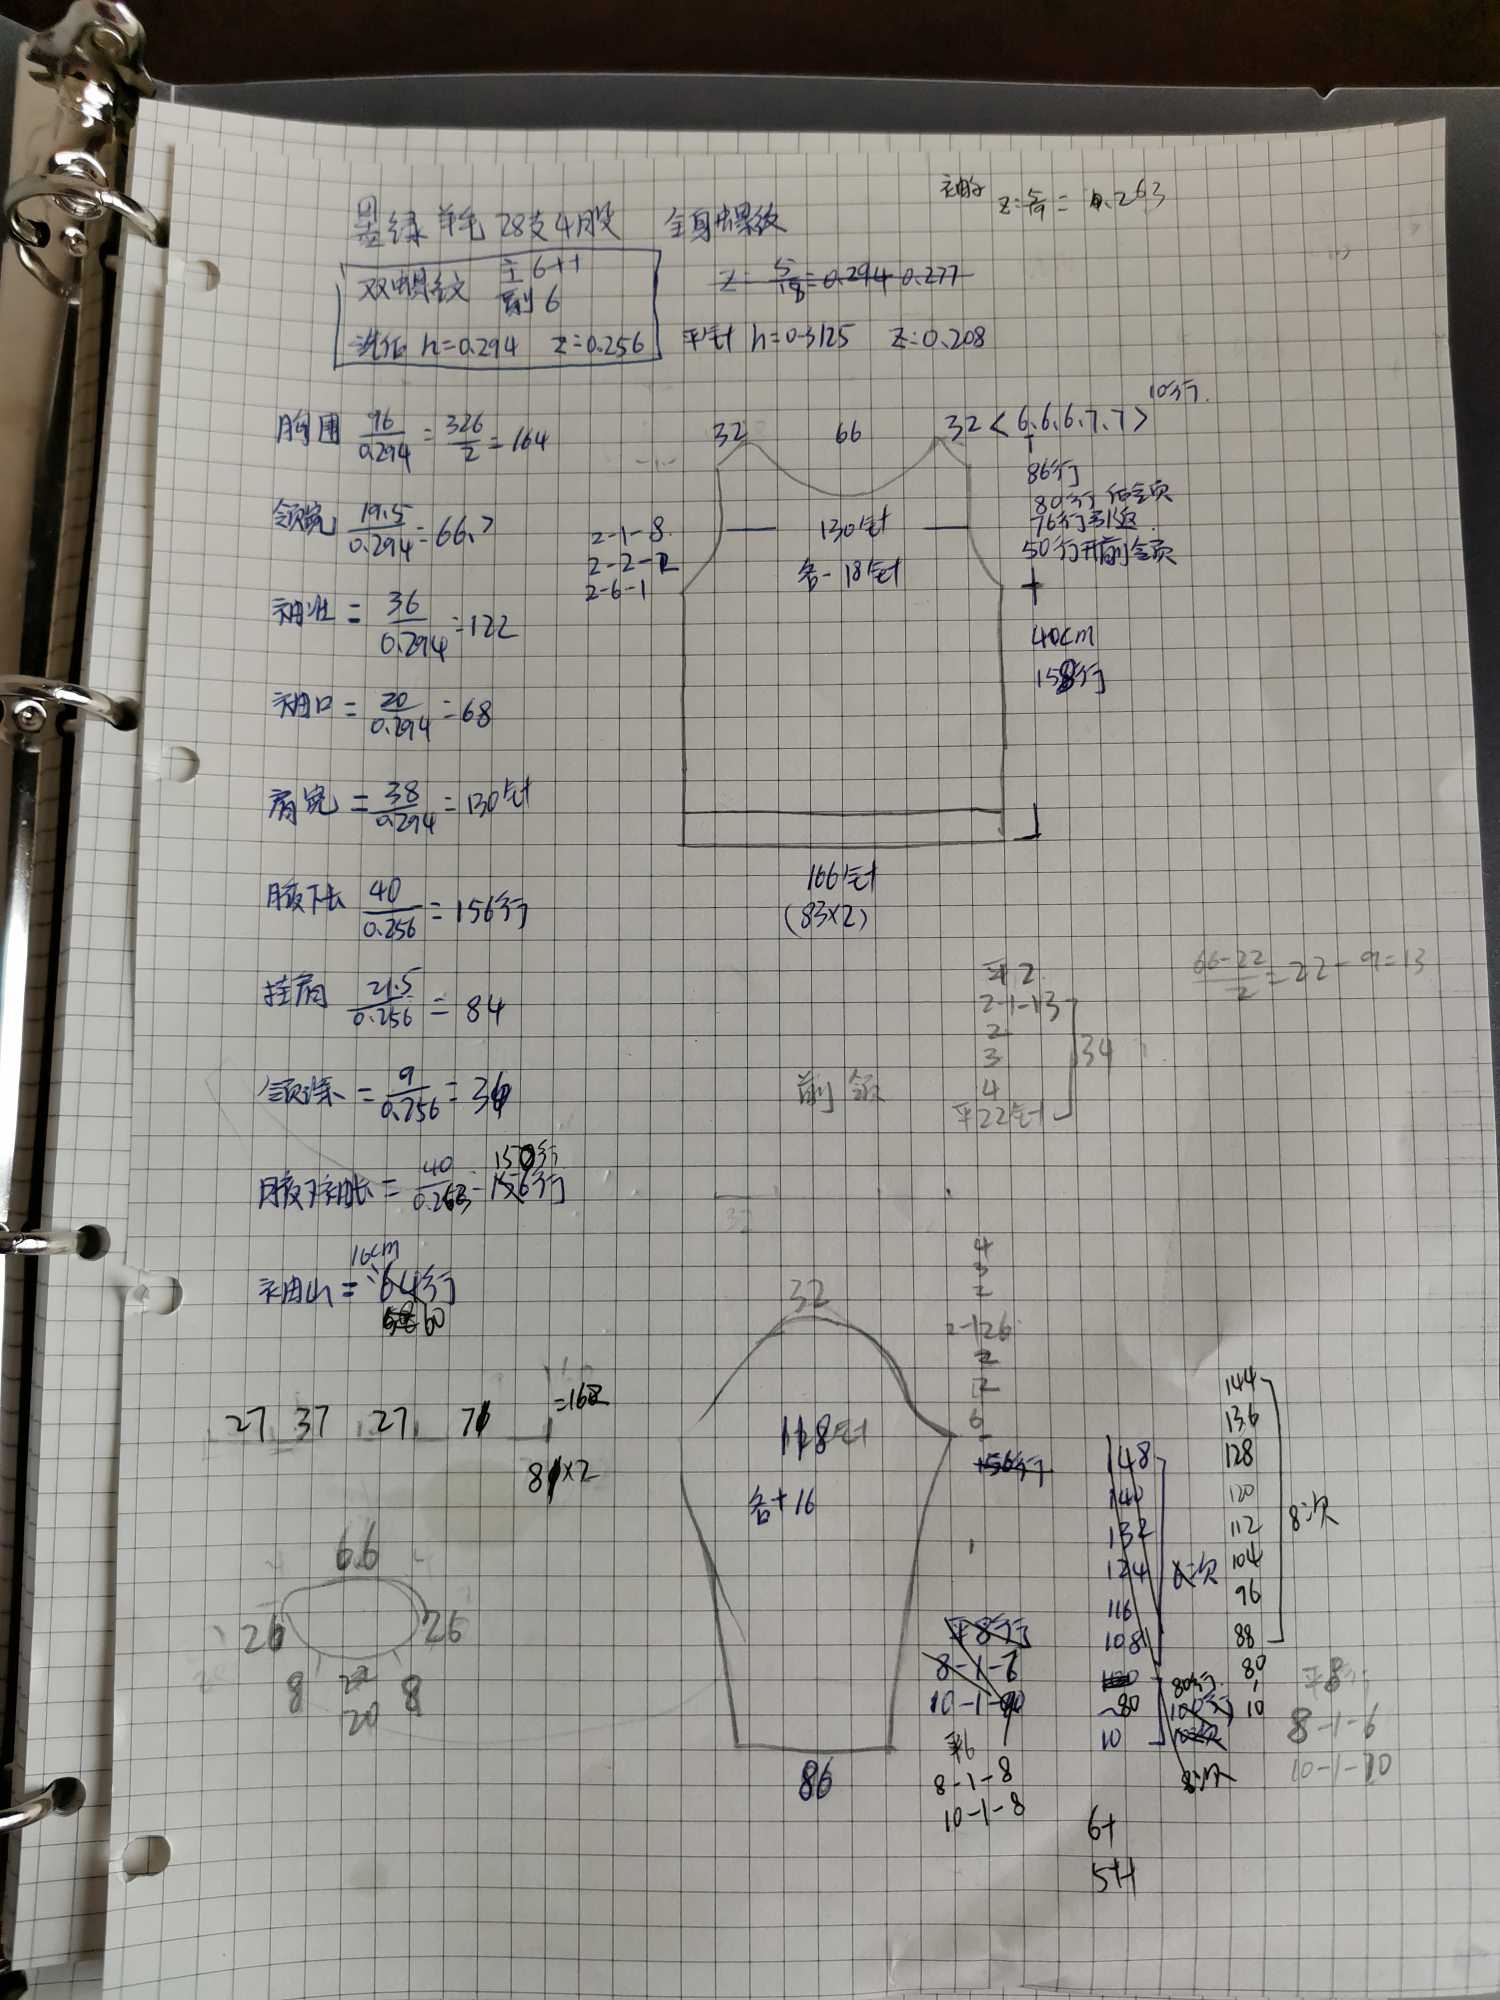 墨绿羊毛 28支4股 全身螺纹
袖的 z=5/19=0.263
双螺纹 主6++
副6
洗后 h=0.294 z=0.256
z=5/18=0.294 0.277
平针 h=0.3125 z=0.208
胸围 96/0.294=326/2=164
领宽 19.5/0.294=66.7
袖壮=36/0.294=122
袖口=20/0.294=68
肩宽=38/0.294=130针
腋下长 40/0.256=156行
挂肩 21.5/0.256=84
领深=9/0.256=36
腋下袖长=40/0.263=156行
150行
袖山=64行
16cm
60
32 66 32<6.6.6.7.7>10行.
86行
80行后领
76行引返.
50行开前领
+
40cm
158行
2-1-8.
2-2-2
2-6-1
130针
各-18针
166针
(83×2)
前领
平2
2-1-13
2
3
4
平22针
34
(66-22)/2=22-9=13
27 37 27 71 =162
81×2
66
26 26
8 20 8
32
118针
各+16
86
4
3
2
2-1-26
2
2
6
156行
148
140
132
124
116
108
~80
10
平8行
8-1-6
10-1-10
平6
8-1-8
10-1-8
6+
5++
144
136
128
120
112
104
96
88
8次
80
10
80行
100行
10次
8次
平8行
8-1-6
10-1-10